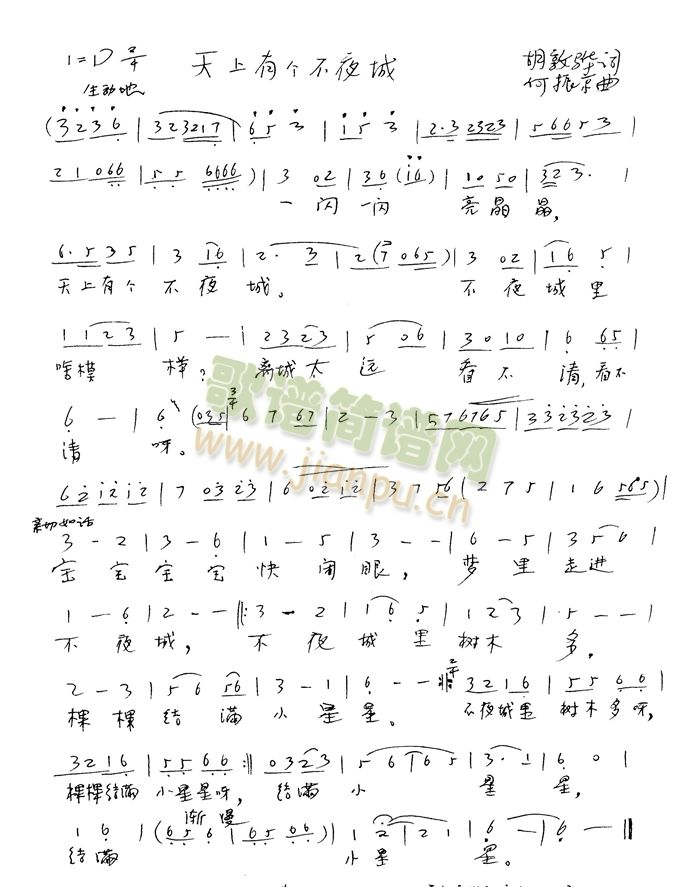 1=D 2/4 天上有个不夜城 胡敦骅词
生动地 何振京曲
(3 2 3 6 | 3 2 3 2 1 7 | 6 5 3 | i 5 3 | 2·3 2323 | 5 6 6 5 3 |
2 1 0 6 6 | 5 5 6 6 6 6) | 3 0 2 | 3 6 (i 6) | 1 0 5 0 | 3 2 3· |
一 闪 一闪 亮晶 晶,
6·5 3 5 | 3 1 6 | 2· 3 | 2 (7 0 6 5) | 3 0 2 | 1 6 5 |
天上有个 不 夜 城。 不 夜 城 里
1 1 2 3 | 5 — | 2 3 2 3 | 5 0 6 | 3 0 1 0 | 6 6 5 |
啥模 样? 离城太 远 看不 清,看不
6 — | 6 (0 3 5 | 3/4 6 7 6 7 | 2 — 3 | 5 7 6 7 6 5 | 3 3 2 3 2 3 |
清 呀。
6 2 i 2 i 2 | 7 0 3 2 3 | 6 0 2 i 2 | 3 7 5 6 | 2 7 5 | 1 6 5 6 5) |
亲切如话
3 - 2 | 3 - 6 | 1 - 5 | 3 - - | 6 - 5 | 3 5 6 |
宝 宝 宝 宝 快 闭 眼, 梦 里 走 进
1 - 6 | 2 - - |: 3 - 2 | 1 6 5 | 1 2 3 | 5 - - |
不 夜 城, 不 夜 城 里 树 木 多。
2 - 3 | 5 6 5 6 | 3 - 1 | 6 - - :| 2/4 3 2 1 6 | 5 5 6 6 |
棵 棵 结 满 小 星 星。 不夜城里 树木多呀,
3 2 1 6 | 5 5 6 6 :| 0 3 2 3 | 5 6 | 6 5 | 3· 1 | 6 0 |
棵棵结满 小星星呀, 结满 小 星 星,
渐慢
1 6 | (6 5 6 | 6 5 6 6) | 1 2 | 2 1 | 6 — | 6 — ||
结满 小星 星。
歌谱简谱网
www.jianpu.cn